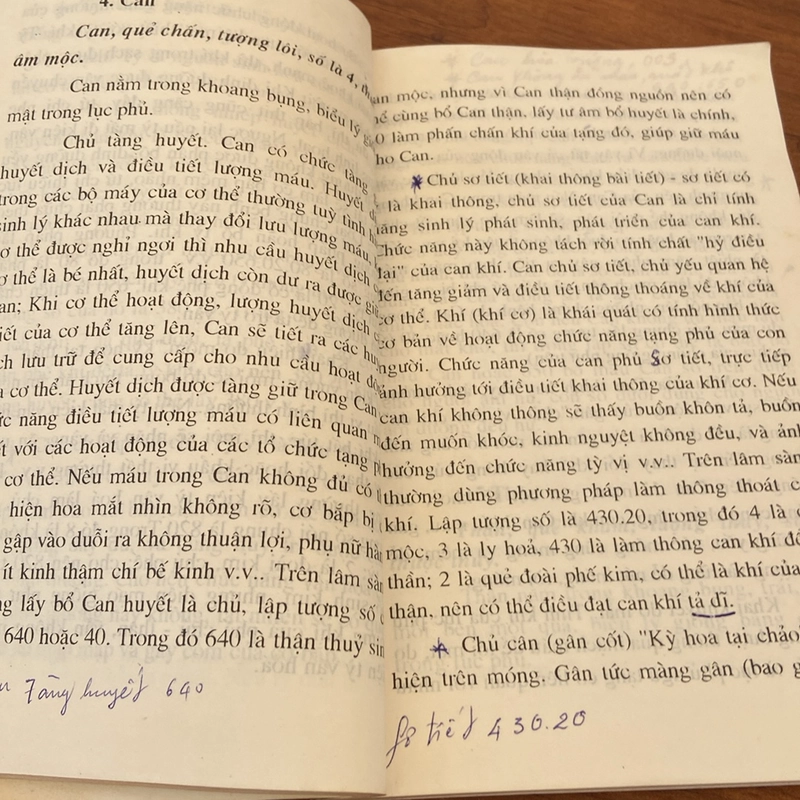 4. Can
Can, quẻ chấn, tượng lôi, số là 4,
âm mộc.
Can nằm trong khoang bụng, biểu lý
mật trong lục phủ.
Chủ tàng huyết. Can có chức tàng
huyết dịch và điều tiết lượng máu. Huyết
trong các bộ máy của cơ thể thường tuỳ tình
sinh lý khác nhau mà thay đổi lưu lượng máu,
cơ thể được nghỉ ngơi thì nhu cầu huyết dịch
cơ thể là bé nhất, huyết dịch còn dư ra được
Can; Khi cơ thể hoạt động, lượng huyết dịch
tiết của cơ thể tăng lên, Can sẽ tiết ra các
lưu trữ để cung cấp cho nhu cầu hoạt
cơ thể. Huyết dịch được tàng giữ trong Can
năng điều tiết lượng máu có liên quan
với các hoạt động của các tổ chức tạng
cơ thể. Nếu máu trong Can không đủ có
hiện hoa mắt nhìn không rõ, cơ bắp bị
gập vào duỗi ra không thuận lợi, phụ nữ
ít kinh thậm chí bế kinh v.v.. Trên lâm
lấy bổ Can huyết là chủ, lập tượng số
640 hoặc 40. Trong đó 640 là thận thuỷ
Tàng huyết 640
mộc, nhưng vì Can thận đồng nguồn nên có
cùng bổ Can thận, lấy tư âm bổ huyết là chính,
0 làm phấn chấn khí của tạng đó, giúp giữ máu
cho Can.
Chủ sơ tiết (khai thông bài tiết) - sơ tiết có
là khai thông, chủ sơ tiết của Can là chỉ tính
năng sinh lý phát sinh, phát triển của can khí.
Chức năng này không tách rời tính chất "hỷ điều
đạt" của can khí. Can chủ sơ tiết, chủ yếu quan hệ
đến tăng giảm và điều tiết thông thoáng về khí của
cơ thể. Khí (khí cơ) là khái quát có tính hình thức
cơ bản về hoạt động chức năng tạng phủ của con
người. Chức năng của can phủ sơ tiết, trực tiếp
ảnh hưởng tới điều tiết khai thông của khí cơ. Nếu
can khí không thông sẽ thấy buồn khôn tả, buồn
đến muốn khóc, kinh nguyệt không đều, và ảnh
hưởng đến chức năng tỳ vị v.v.. Trên lâm sàn
thường dùng phương pháp làm thông thoát c
khí. Lập tượng số là 430.20, trong đó 4 là c
mộc, 3 là ly hoả, 430 là làm thông can khí để
thần; 2 là quẻ đoài phế kim, có thể là khí của
thận, nên có thể điều đạt can khí tả dĩ.
Chủ cân (gân cốt) "Kỳ hoa tại chảo"
hiện trên móng. Gân tức màng gân (bao g
Sơ tiết 430.20